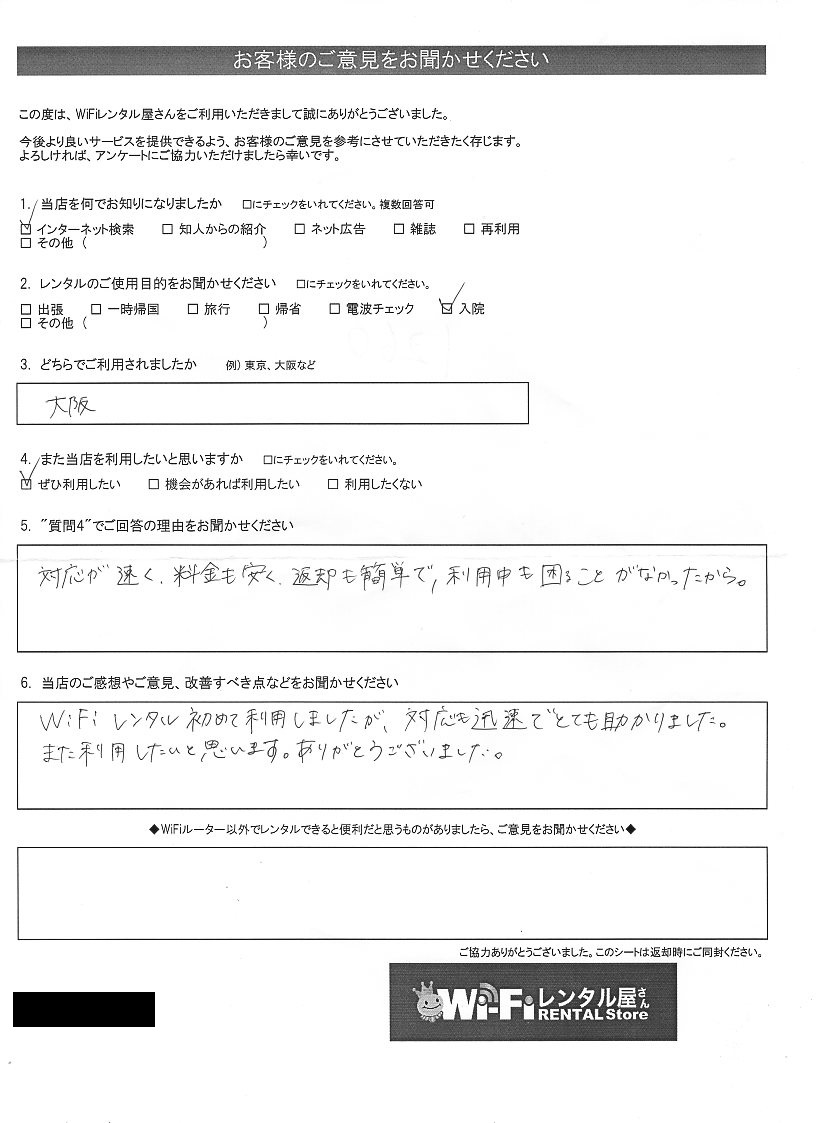 お客様のご意見をお聞かせください
この度は、WiFiレンタル屋さんをご利用いただきまして誠にありがとうございました。
今後より良いサービスを提供できるよう、お客様のご意見を参考にさせていただきたく存じます。
よろしければ、アンケートにご協力いただけましたら幸いです。
1. 当店を何でお知りになりましたか □にチェックをいれてください。複数回答可
☑ インターネット検索 □ 知人からの紹介 □ ネット広告 □ 雑誌 □ 再利用
□ その他 ( )
2. レンタルのご使用目的をお聞かせください □にチェックをいれてください。
□ 出張 □ 一時帰国 □ 旅行 □ 帰省 □ 電波チェック ☑ 入院
□ その他 ( )
3. どちらでご利用されましたか 例) 東京、大阪など
大阪
4. また当店を利用したいと思いますか □にチェックをいれてください。
☑ ぜひ利用したい □ 機会があれば利用したい □ 利用したくない
5. "質問4"でご回答の理由をお聞かせください
対応が速く、料金も安く、返却も簡単で、利用中も困ることがなかったから。
6. 当店のご感想やご意見、改善すべき点などをお聞かせください
WiFiレンタル初めて利用しましたが、対応も迅速でとても助かりました。
また利用したいと思います。ありがとうございました。
◆WiFiルーター以外でレンタルできると便利だと思うものがありましたら、ご意見をお聞かせください◆
ご協力ありがとうございました。このシートは返却時にご同封ください。
Wi-Fiレンタル屋さん
RENTAL Store